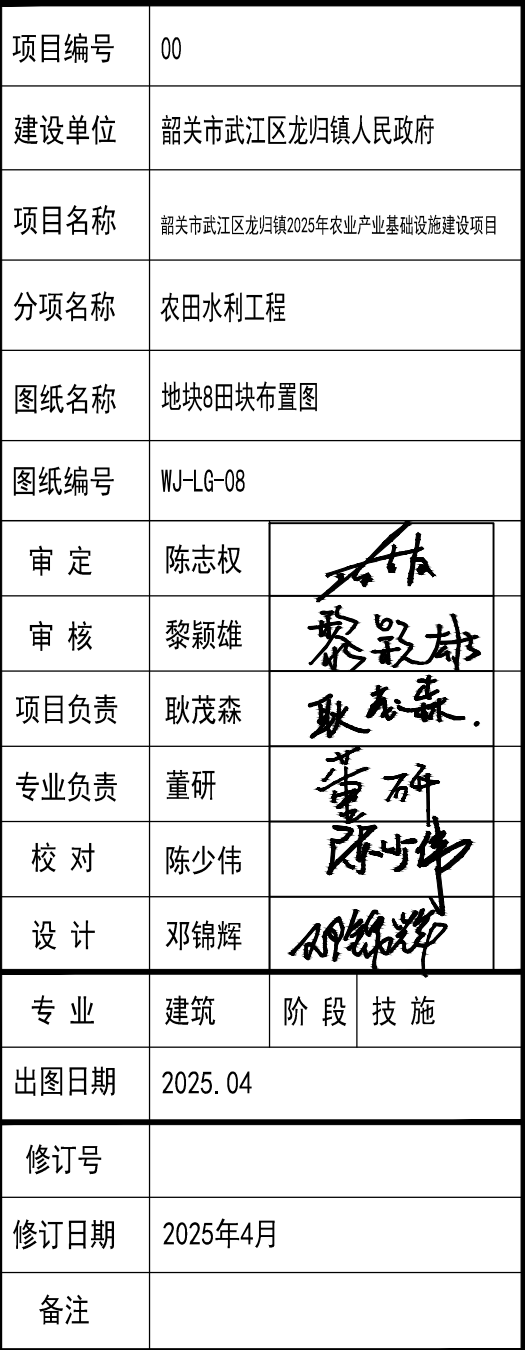 项目编号 00
建设单位 韶关市武江区龙归镇人民政府
项目名称 韶关市武江区龙归镇2025年农业产业基础设施建设项目
分项名称 农田水利工程
图纸名称 地块8田块布置图
图纸编号 WJ-LG-08
审 定 陈志权
审 核 黎颖雄 黎颖雄
项目负责 耿茂森 耿茂森.
专业负责 董研 董研
校 对 陈少伟 陈少伟
设 计 邓锦辉 邓锦辉
专 业 建筑 阶 段 技 施
出图日期 2025.04
修订号
修订日期 2025年4月
备注